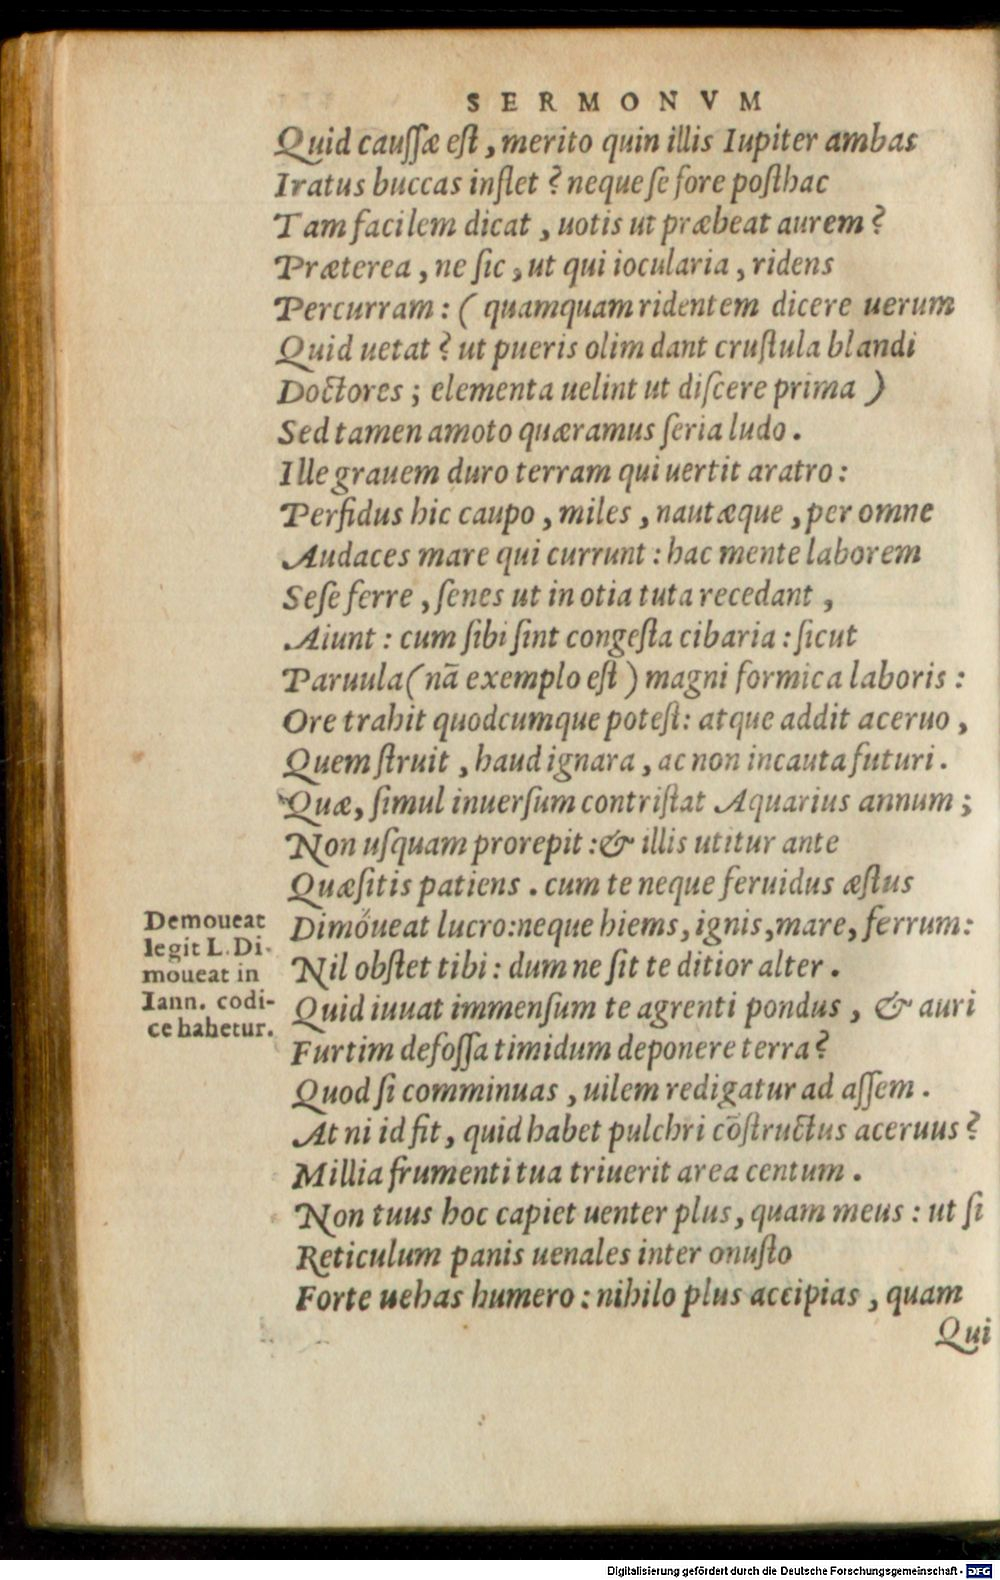 SERMONVM
Quid cauſſæ eſt, merito quin illis Iupiter ambas
Iratus buccas inflet? neque ſe fore poſthac
Tam facilem dicat, uotis ut præbeat aurem?
Præterea, ne ſic, ut qui iocularia, ridens
Percurram: (quamquam ridentem dicere uerum
Quid uetat? ut pueris olim dant cruſtula blandi
Doctores; elementa uelint ut diſcere prima)
Sed tamen amoto quæramus ſeria ludo.
Ille grauem duro terram qui uertit aratro:
Perfidus hic caupo, miles, nautæque, per omne
Audaces mare qui currunt: hac mente laborem
Seſe ferre, ſenes ut in otia tuta recedant,
Aiunt: cum ſibi ſint congeſta cibaria: ſicut
Paruula (nā exemplo eſt) magni formica laboris:
Ore trahit quodcumque poteſt: atque addit aceruo,
Quem ſtruit, haud ignara, ac non incauta futuri.
Quæ, ſimul inuerſum contriſtat Aquarius annum;
Non uſquam prorepit: & illis utitur ante
Quæſitis patiens. cum te neque feruidus æſtus
Dimoueat lucro: neque hiems, ignis, mare, ferrum:
Nil obſtet tibi: dum ne ſit te ditior alter.
Quid iuuat immenſum te agrenti pondus, & auri
Furtim defoſſa timidum deponere terra?
Quod ſi comminuas, uilem redigatur ad aſſem.
At ni id fit, quid habet pulchri cōſtructus aceruus?
Millia frumenti tua triuerit area centum.
Non tuus hoc capiet uenter plus, quam meus: ut ſi
Reticulum panis uenales inter onuſto
Forte uehas humero: nihilo plus accipias, quam
Qui
Demoueat
legit L. Di-
moueat in
Iann. codi-
ce habetur.
Digitalisierung gefördert durch die Deutsche Forschungsgemeinschaft - DFG